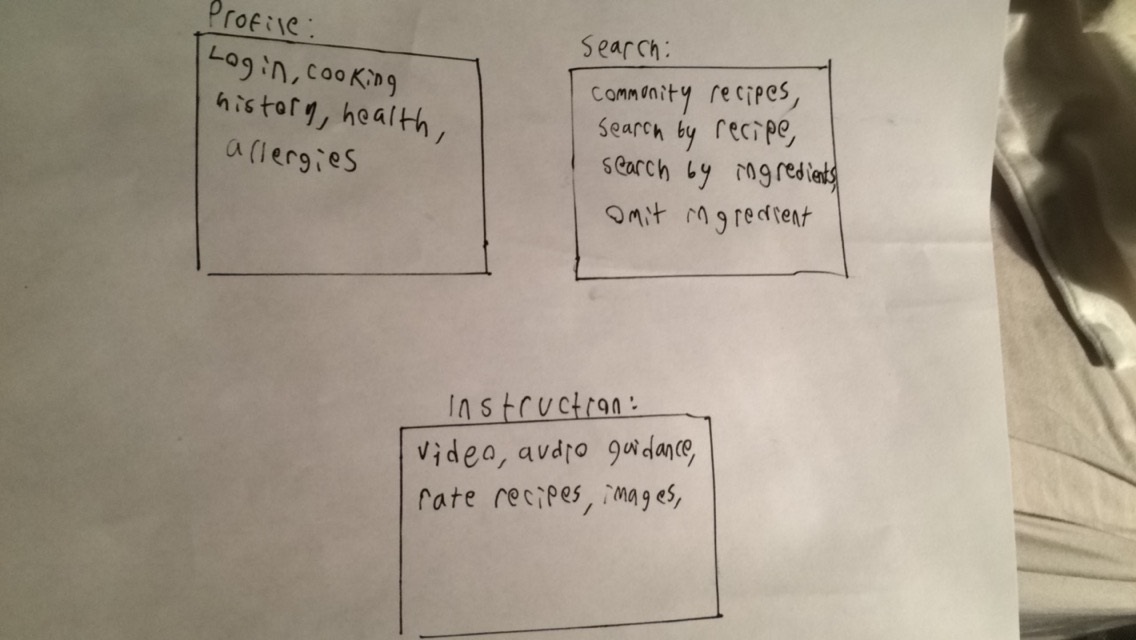 Profile:
Login, cooking
history, health,
allergies
Search:
community recipes,
search by recipe,
search by ingredients,
omit ingredient
Instruction:
video, audio guidance,
rate recipes, images,